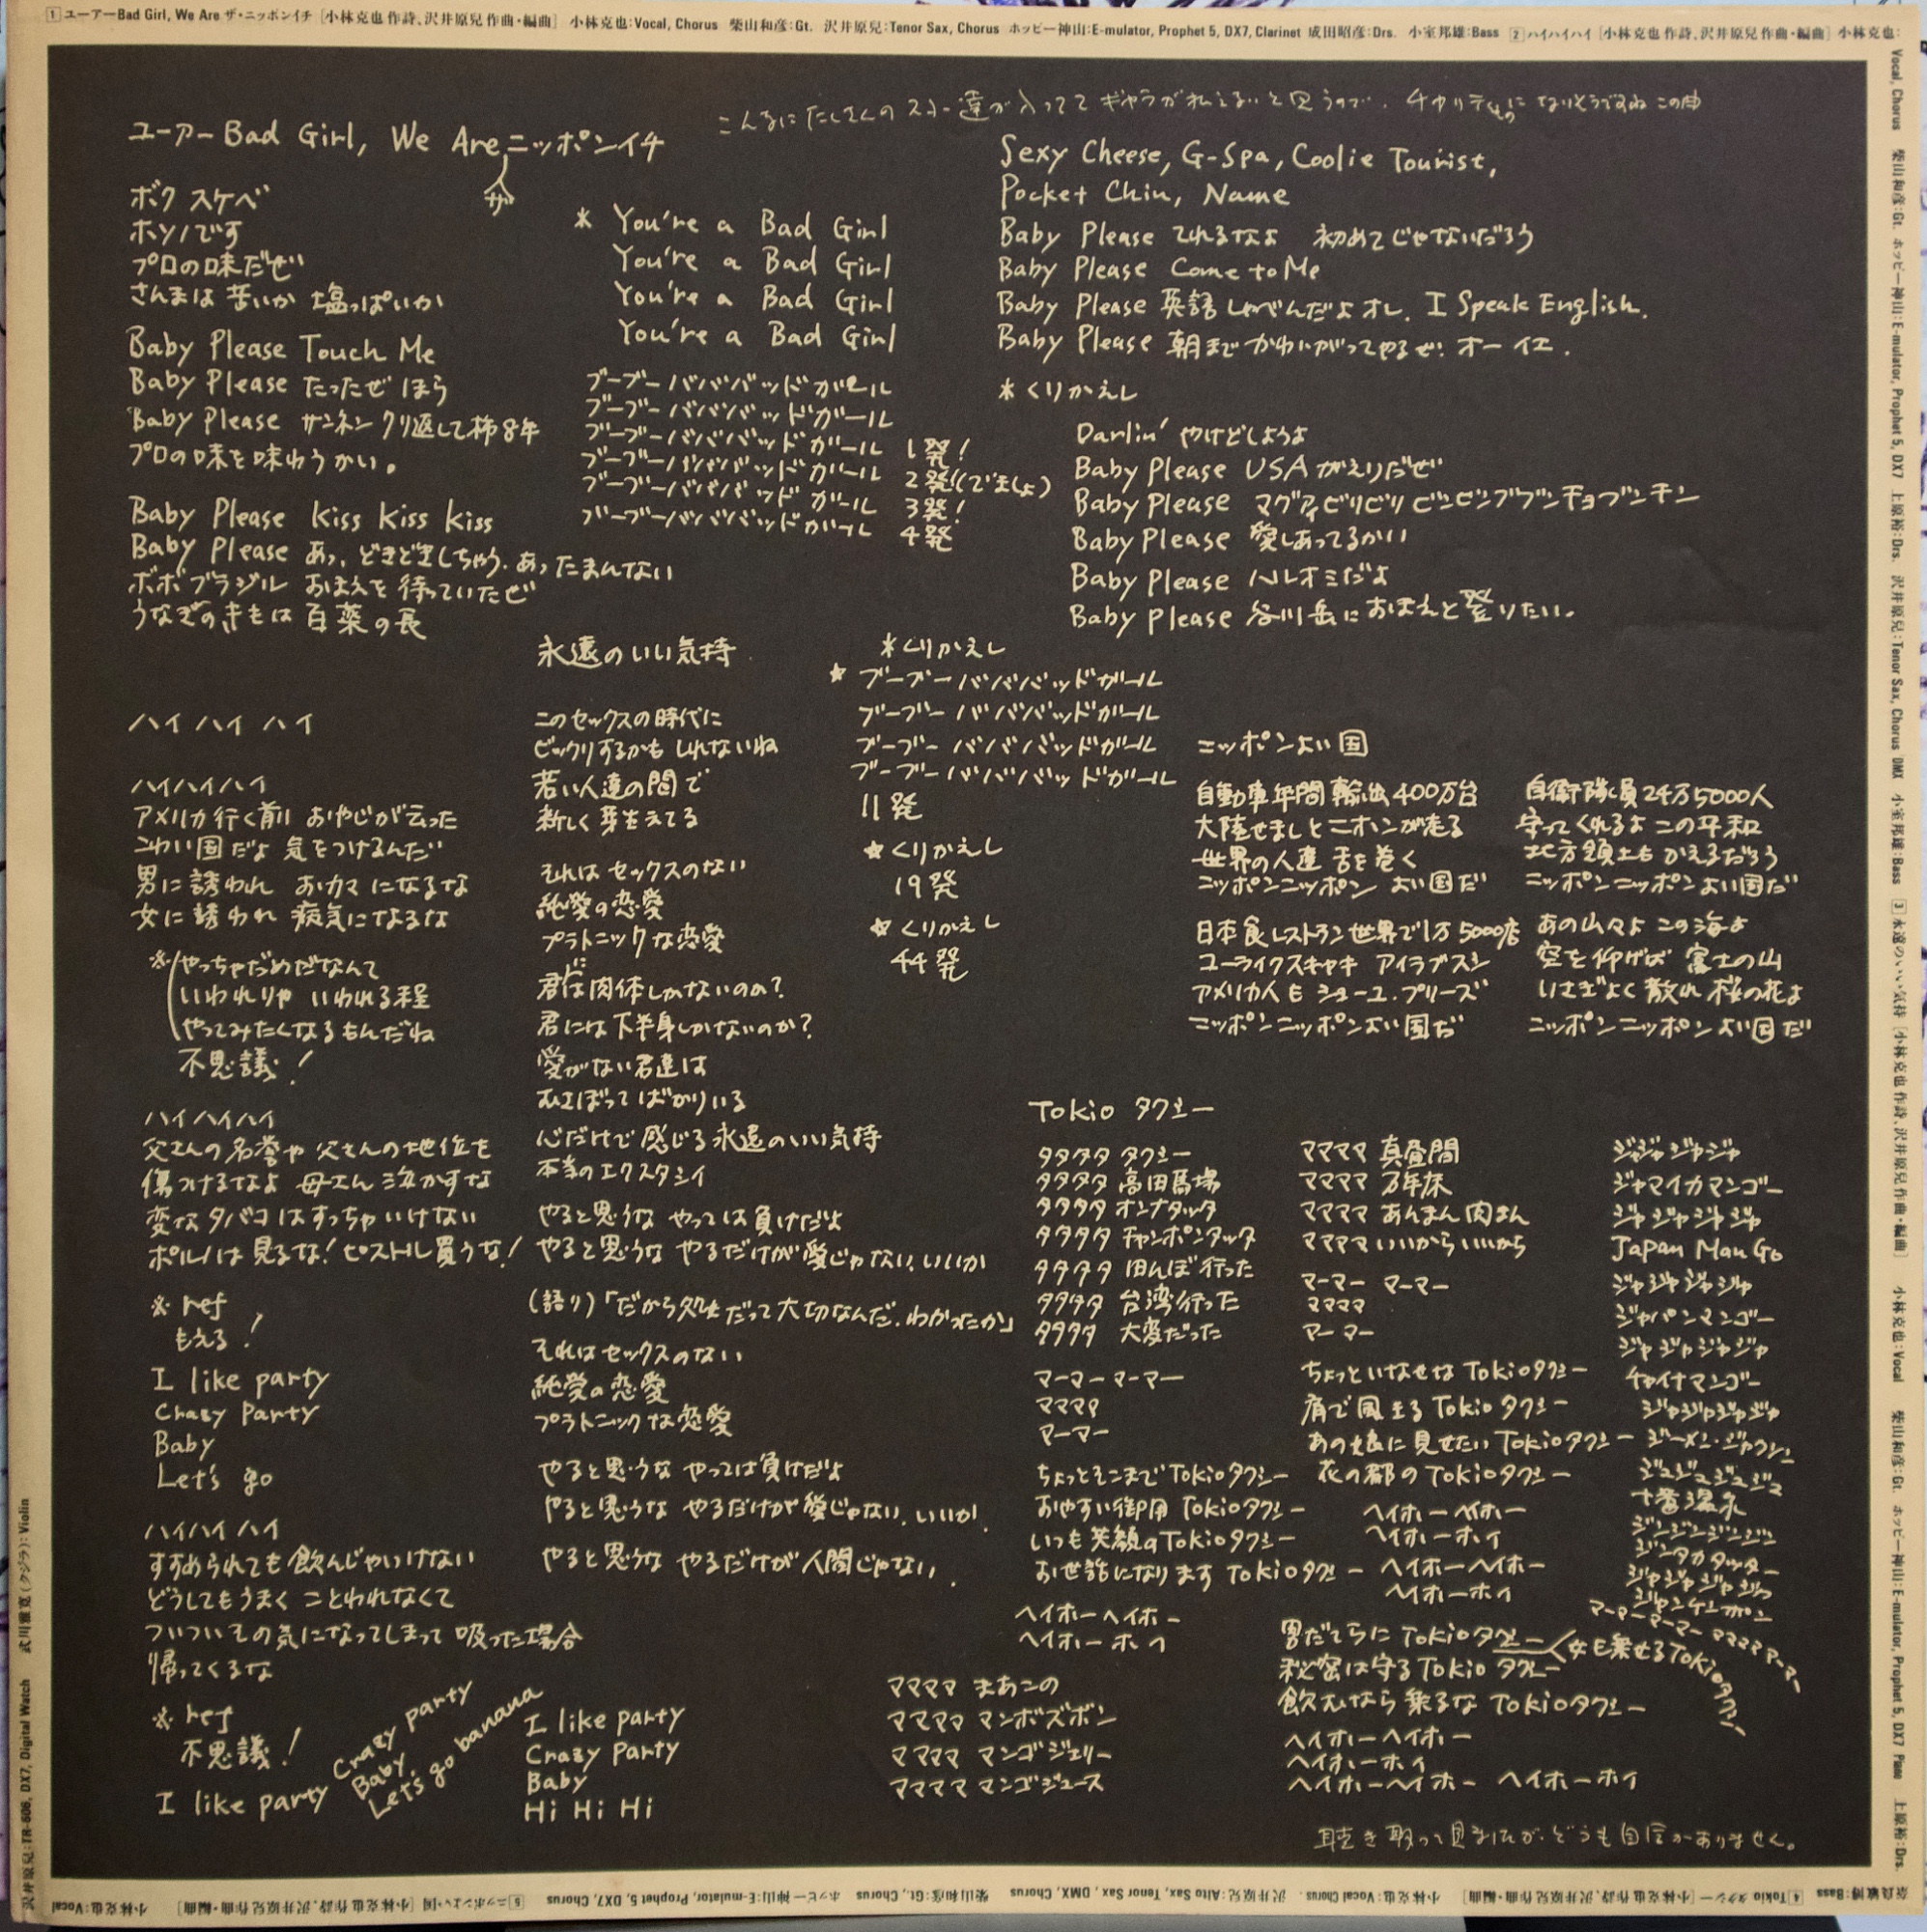 1 ユーアーBad Girl, We Are ザ・ニッポンイチ [小林克也 作詩、沢井原兒 作曲・編曲] 小林克也:Vocal, Chorus 柴山和彦:Gt. 沢井原兒:Tenor Sax, Chorus ホッピー神山:E-mulator, Prophet 5, DX7, Clarinet 成田昭彦:Drs. 小室邦雄:Bass 2 ハイハイハイ [小林克也 作詩、沢井原兒 作曲・編曲] 小林克也:
Vocal, Chorus 柴山和彦:Gt. ホッピー神山:E-mulator, Prophet 5, DX7 上原裕:Drs. 沢井原兒:Tenor Sax, Chorus DMX 小室邦雄:Bass 3 永遠のいい気持 [小林克也 作詩、沢井原兒 作曲・編曲] 小林克也:Vocal 柴山和彦:Gt. ホッピー神山:E-mulator, Prophet 5, DX7 Piano 上原裕:Drs.
奈良敏博:Bass 4 Tokio タクシー [小林克也 作詩、沢井原兒 作曲・編曲] 小林克也:Vocal Chorus 沢井原兒:Alto Sax, Tenor Sax, DMX, Chorus 柴山和彦:Gt., Chorus ホッピー神山:E-mulator, Prophet 5, DX7, Chorus 5 ニッポンよい国 [小林克也 作詩、沢井原兒 作曲・編曲] 小林克也:Vocal
沢井原兒:TR-606, DX7, Digital Watch 武川雅寛(クジラ):Violin
こんなにたくさんのスター達が入ってて ギャラが払えないと思うので、チャリティものに ないそうですね この曲
ユーアー Bad Girl, We Are ザ ニッポンイチ
ボク スケベ
ホソノです
プロの味だぜ
さんまは 苦いか 塩っぱいか
Baby Please Touch Me
Baby Please たったぜ ほら
Baby Please サンネン クリ返して柿8年
プロの味を味わうかい。
Baby Please Kiss Kiss Kiss
Baby Please あっ、どきどきしちゃう、あっ たまんない
ボボブラジル おまえを 待っていたぜ
うなぎのきもは 百薬の長
* You're a Bad Girl
You're a Bad Girl
You're a Bad Girl
You're a Bad Girl
ブーブーババババッドガール
ブーブーババババッドガール
ブーブーババババッドガール 1発!
ブーブーババババッドガール 2発!(でましょ)
ブーブーババババッドガール 3発!
ブーブーババババッドガール 4発
Sexy Cheese, G-Spa, Coolie Tourist,
Pocket Chin, Name
Baby Please てれるなよ 初めてじゃないだろう
Baby Please Come to Me
Baby Please 英語しゃべんだよオレ. I Speak English.
Baby Please 朝までかわいがってやるぜ! オーイエ.
* くりかえし
Darlin' やけどしようよ
Baby Please USAがえりだぜ
Baby Please マグアィビリビリ ビンビンブブンチョブンチン
Baby Please 愛しあってるかい
Baby Please ハレオミだよ
Baby Please 谷川岳におまえと登りたい.
* くりかえし
☆ ブーブー ババババッドガール
ブーブー ババババッドガール
ブーブー ババババッドガール
ブーブー ババババッドガール
11発
☆くりかえし
19発
☆くりかえし
44発
ハイ ハイ ハイ
ハイハイハイ
アメリカ行く前に おやじが云った
こわい国だよ 気をつけるんだい
男に誘われ おカマになるな
女に誘われ 病気になるな
※やっちゃだめだなんて
いわれりゃ いわれる程
やってみたくなるもんだね
不思議!
ハイハイハイ
父さんの名誉や 父さんの地位を
傷つけるなよ 母さん泣かすな
変なタバコはすっちゃいけない
ポルノは見るな! ピストル買うな!
※ ref
もえる!
I like party
Crazy Party
Baby
Let's go
ハイハイ ハイ
すすめられても飲んじゃいけない
どうしてもうまく ことわれなくて
ついついその気になってしまって 吸った場合
帰ってくるな
※ ref
不思議!
I like party Crazy party
Baby,
Let's go banana
I like party
Crazy Party
Baby
Hi Hi Hi
永遠のいい気持
このセックスの時代に
ビックリするかも しれないね
若い人達の間で
新しく芽生えてる
それは セックスのない
純愛の恋愛
プラトニックな恋愛
君には肉体しかないのか?
君には下半身しかないのか?
愛がない君達は
むさぼってばかりいる
心だけで感じる永遠のいい気持
本当のエクスタシイ
やると思うな やっては負けだよ
やると思うな やるだけが愛じゃない、いいか
(語り)「だから処女だって大切なんだ、わかったか」
それはセックスのない
純愛の恋愛
プラトニックな恋愛
やると思うな やっては負けだよ
やると思うな やるだけが愛じゃない、いいか.
やると思うな やるだけが人間じゃない.
ニッポンよい国
自動車年間輸出400万台
大陸せましとニホンが走る
世界の人達 舌を巻く
ニッポンニッポン よい国だ
日本食レストラン世界で1万5000店
ユーライクスキヤキ アイラブスシ
アメリカ人も ショーユ・プリーズ
ニッポンニッポンよい国だ
自衛隊員24万5000人
守ってくれるよ この平和
北方領土も かえるだろう
ニッポンニッポンよい国だ
あの山々よ この海よ
空を仰げば 富士の山
いさぎよく散れ 桜の花よ
ニッポンニッポン よい国だ
Tokio タクシー
タタタタ タクシー
タタタタ 高田馬場
タタタタ オンナタッタ
タタタタ チャンポンタッタ
タタタタ 田んぼ行った
タタタタ 台湾行った
タタタタ 大変だった
マーマーマーマー
マママママ
マーマー
ちょっとそこまでTokioタクシー
おやすい御用 Tokioタクシー
いつも笑顔のTokioタクシー
お世話になります Tokioタクシー
ヘイホーヘイホー
ヘイホー ホイ
ママママ まあこの
ママママ マンボズボン
ママママ マンゴジェリー
ママママ マンゴジュース
ママママ 真昼間
ママママ 万年床
ママママ あんまん肉まん
ママママいいからいいから
マーマー マーマー
ママママ
マーマー
ちょっといなせな Tokioタクシー
肩で風きる Tokioタクシー
あの娘に見せたい Tokioタクシー
花の都の Tokioタクシー
ヘイホーヘイホー
ヘイホーホイ
ヘイホーヘイホー
ヘイホーホイ
男だてらに Tokioタクシー
女も乗せるTokioタクシー
秘密は守る Tokio タクシー
飲むなら乗るな Tokioタクシー
ヘイホーヘイホー
ヘイホーホイ
ヘイホーヘイホー ヘイホーホイ
ジャジャジャジャ
ジャマイカマンゴー
ジャジャジャジャ
Japan Man Go
ジャジャジャジャ
ジャパンマンゴー
ジャジャジャジャ
チャイナマンゴー
ジャジャジャジャ
ジーメン・ジャクソン
ジュジュジュジュ
十番温泉
ジンジンジンジン
ジンタカタッター
ジャジャジャジャ
ジャンケンポン
マーマーマーマー ママママ マーマー
聴き取って見ましたが、どうも自信がありません。